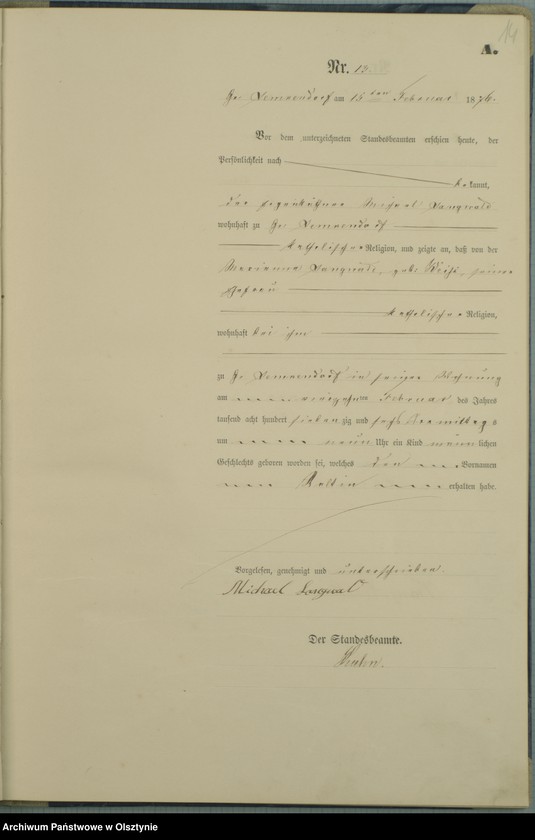 14
A.
Nr. 13.
Gr. am 15ten Februar 1876.
Vor dem unterzeichneten Standesbeamten erschien heute, der
Persönlichkeit nach
bekannt,
der Michael
wohnhaft zu Gr.
katholischer Religion, und zeigte an, daß von der
Marianna geb. seiner
Ehefrau
katholischer Religion,
wohnhaft bei ihm
zu Gr. in seiner Wohnung
am vierzehnten Februar des Jahres
tausend acht hundert siebenzig und sechs Vormittags
um neun Uhr ein Kind männlichen
Geschlechts geboren worden sei, welches den Vornamen
erhalten habe.
Vorgelesen, genehmigt und unterschrieben
Michael
Der Standesbeamte.
Archiwum Państwowe w Olsztynie